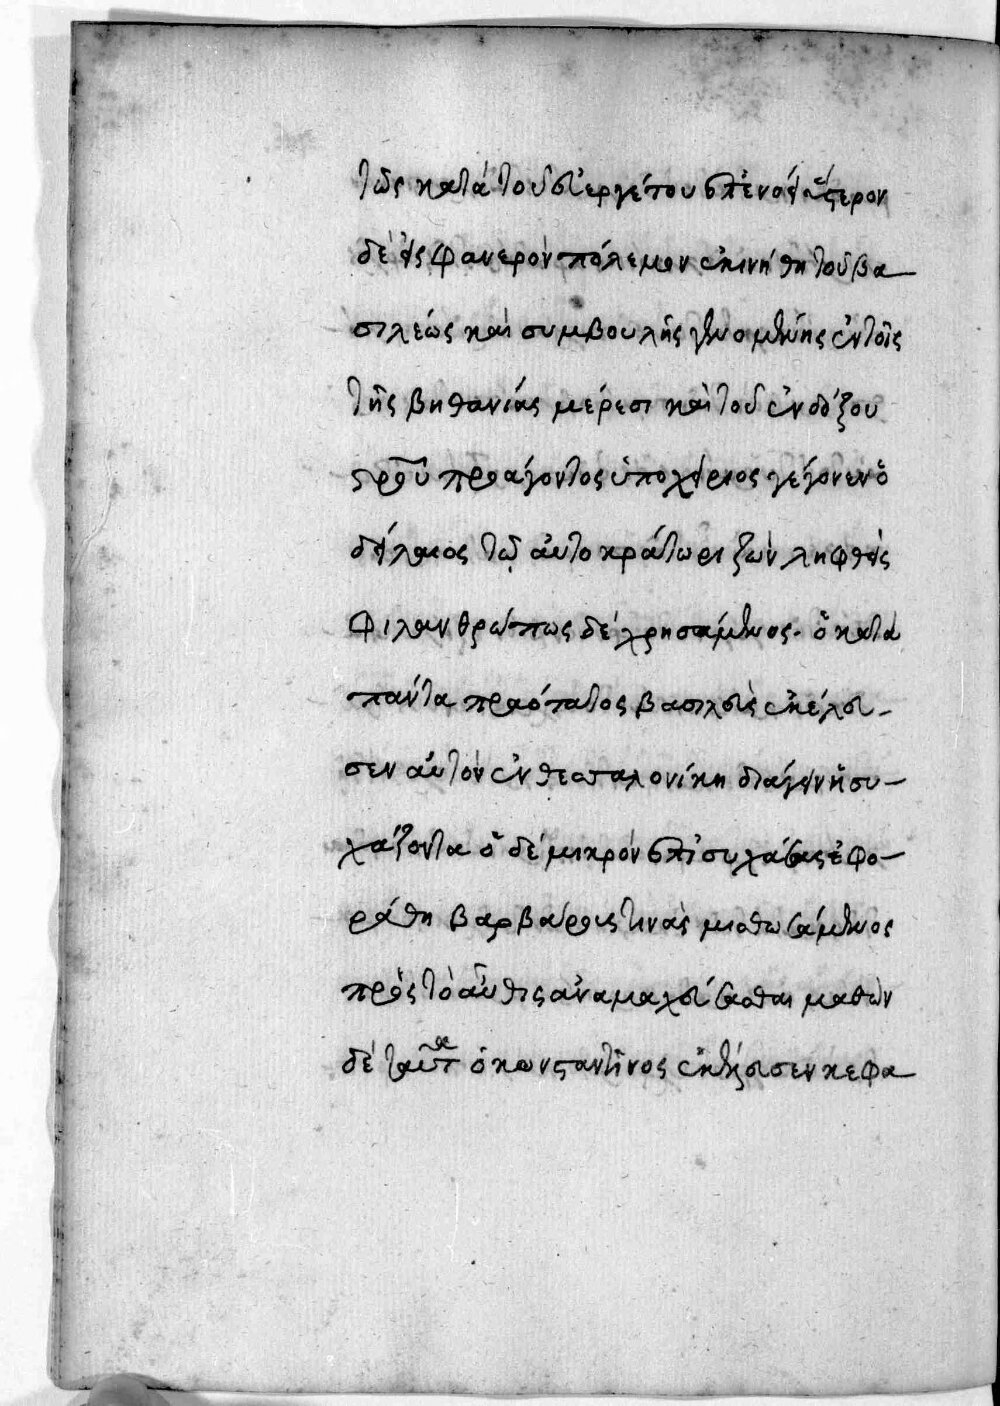 τῶς κατὰ τοῦ εὐεργέτου ἐπενόει ὕστερον
δὲ εἰς φανερὸν πόλεμον ἐκινήθη τοῦ βα
σιλεώς καὶ συμβουλῆς γενομένης ἐν τοῖς
τῆς βηθανίας μέρεσι καὶ τοῦ ἐνδόξου
σροῦ προάγοντος ὑποχείριος γέγονεν ὁ
δείλαιος τῷ αὐτοκράτωρι ζῶν ληφθεὶς
φιλανθρώπως δὲ χρησάμενος. ὁ κατὰ
πάντα πραότατος βασιλεὺς ἐκέλευ-
σεν αὐτὸν ἐν θεσσαλονίκη διάγειν ἡσυ-
χάζοντα ὁ δὲ μικρὸν ἐπισυχάσας ἐφο-
ράθη βαρβάροις τινὰς μισθωσάμενος
πρὸς τὸ αὖθις ἀναμαχεύσασθαι μαθὼν
δὲ ταῦτα ὁ κωνσταντῖνος ἐκέλευσεν κεφα